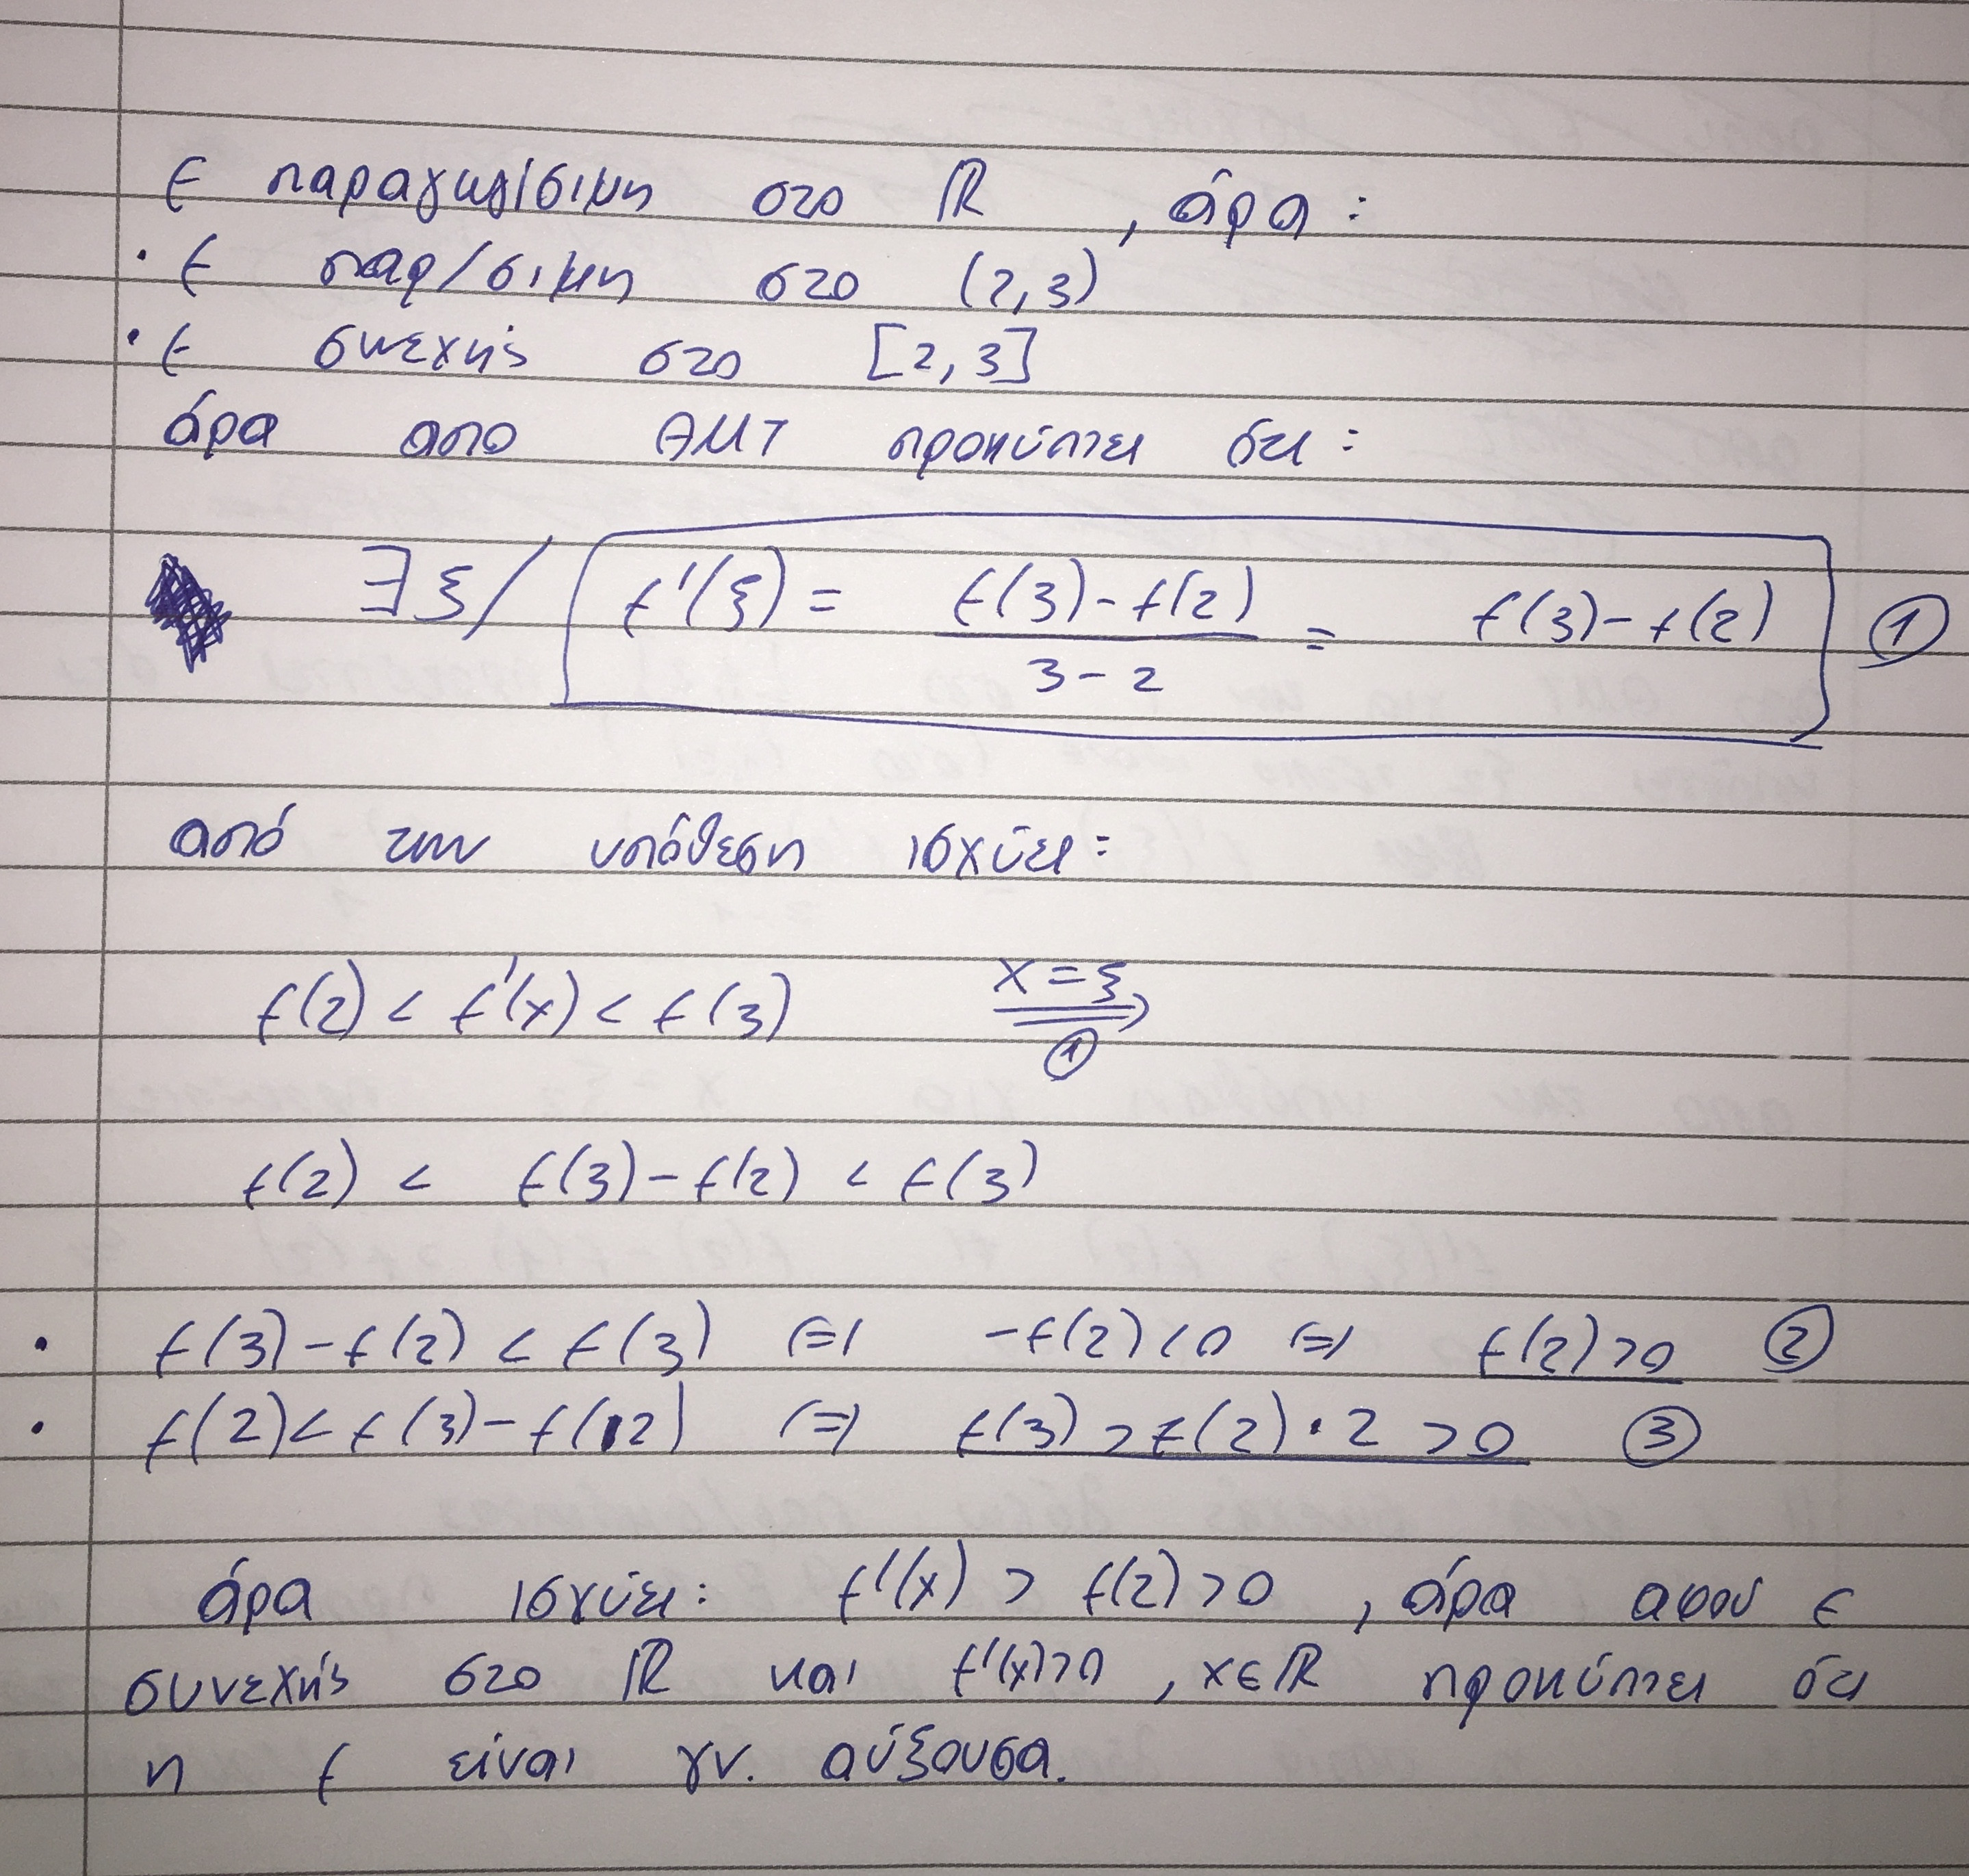 f παραγωγίσιμη στο ℝ , άρα :
· f παρ/σιμη στο (2,3)
· f συνεχής στο [2,3]
άρα απο ΘΜΤ προκύπτει ότι :
∃ ξ / f'(ξ) = f(3)-f(2) / 3-2 = f(3)-f(2) ①
από την υπόθεση ισχύει :
f(2) < f'(x) < f(3) x=ξ ⇒ ①
f(2) < f(3)-f(2) < f(3)
· f(3)-f(2) < f(3) (=) -f(2)<0 (=) f(2)>0 ②
· f(2)<f(3)-f(2) (=) f(3) > f(2)·2 >0 ③
άρα ισχύει: f'(x) > f(2)>0 , άρα αφού f
συνεχής στο ℝ και f'(x)>0 , x∈ℝ προκύπτει ότι
η f είναι γν. αύξουσα.